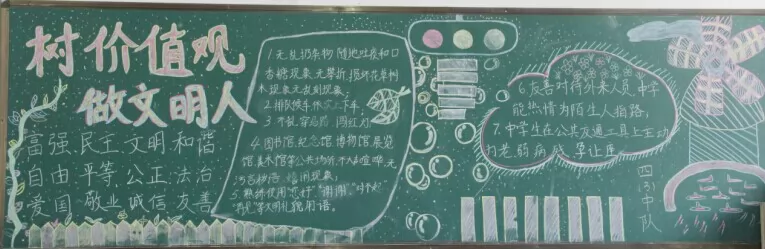 树价值观
做文明人
富强 民主 文明 和谐
自由 平等 公正 法治
爱国 敬业 诚信 友善
1 无乱扔杂物 随地吐痰和口
香糖现象 无攀折、损坏花草树
木现象 无乱刻现象
2. 排队候车 依次上下车
3 不乱穿马路 闯红灯
4. 图书馆、纪念馆 博物馆 展览
馆 美术馆等公共场所 不大声喧哗、无
污言秽语 现象
5. 熟练使用"您好" "谢谢" "对不起"
"再见"等文明礼貌用语。
6. 友善对待外来人员 中学
能热情为陌生人指路。
7. 中学生在公共交通工具上主动
为老弱病残孕让座
四(3)中队